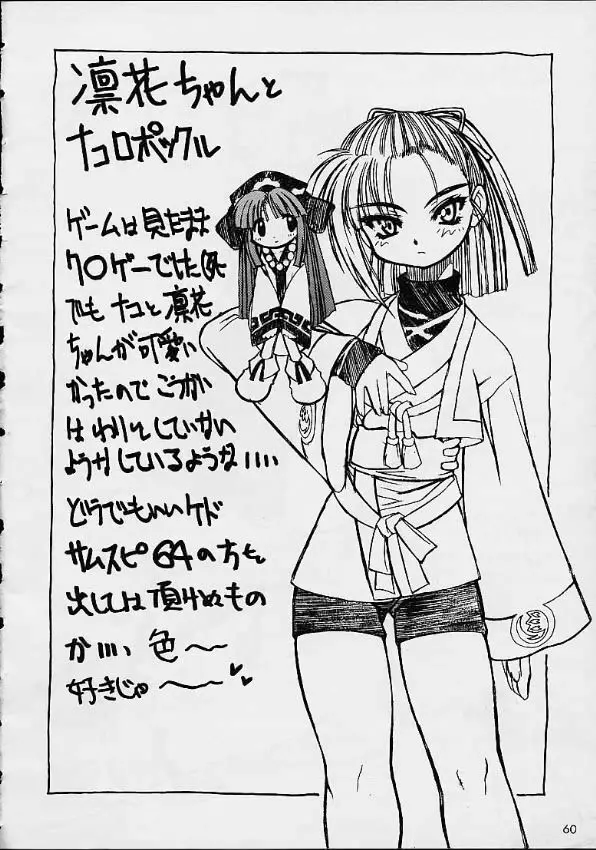 凛花ちゃんと
ナコロポックル
ゲームは見たまま
クロゲーでした(死
でも ナコと 凛花
ちゃんが可愛い
かったので こうかい
はわりとしていない
ようかしているような....
どうでもいいケド
サムスピ64の方を
出しては頂けぬもの
か.... 色〜
好きじゃ〜
60